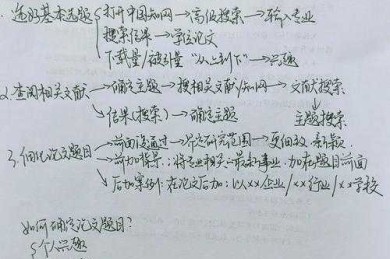 1. 选好基本选题 { 打开中国知网 → 高级搜索 → 输入专业
搜索结果 → 学位论文
下载量/被引量 "从上到下" → 兴趣
2. 查阅相关文献 → 确定主题 → 搜相关文献/知网 → 文献搜索
↓
主题搜索
结果(搜索) → 确定主题
3. 细化论文题目 → 前面没通过 → 缩小研究范围 → 更细致 新颖
→ 前加背景: 将专业相关 最新事业, 加在题目前面
后加案例: 在论文后加: 以××企业/××行业/××学校
如何确定论文题目?
{ 个人兴趣